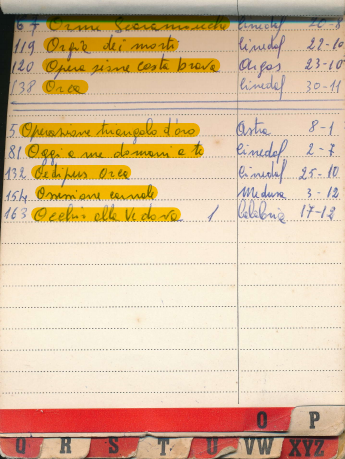 67 Orme Scaramucho Cinedaf 26-8
119 Orgia dei morti Cinedaf 22-10
120 Opera sisne costa brava Argos 23-10
138 Orca Cinedaf 30-11
5 Operazione triangolo d'oro Astra 8-1
81 Oggi a me domani a te Cinedaf 2-7
132 Oedipus Orca Cinedaf 25-10
154 Ossessione carnale Medusa 3-12
163 Occhio alla Vedova 1 17-12
O P
Q R S T U VW XYZ